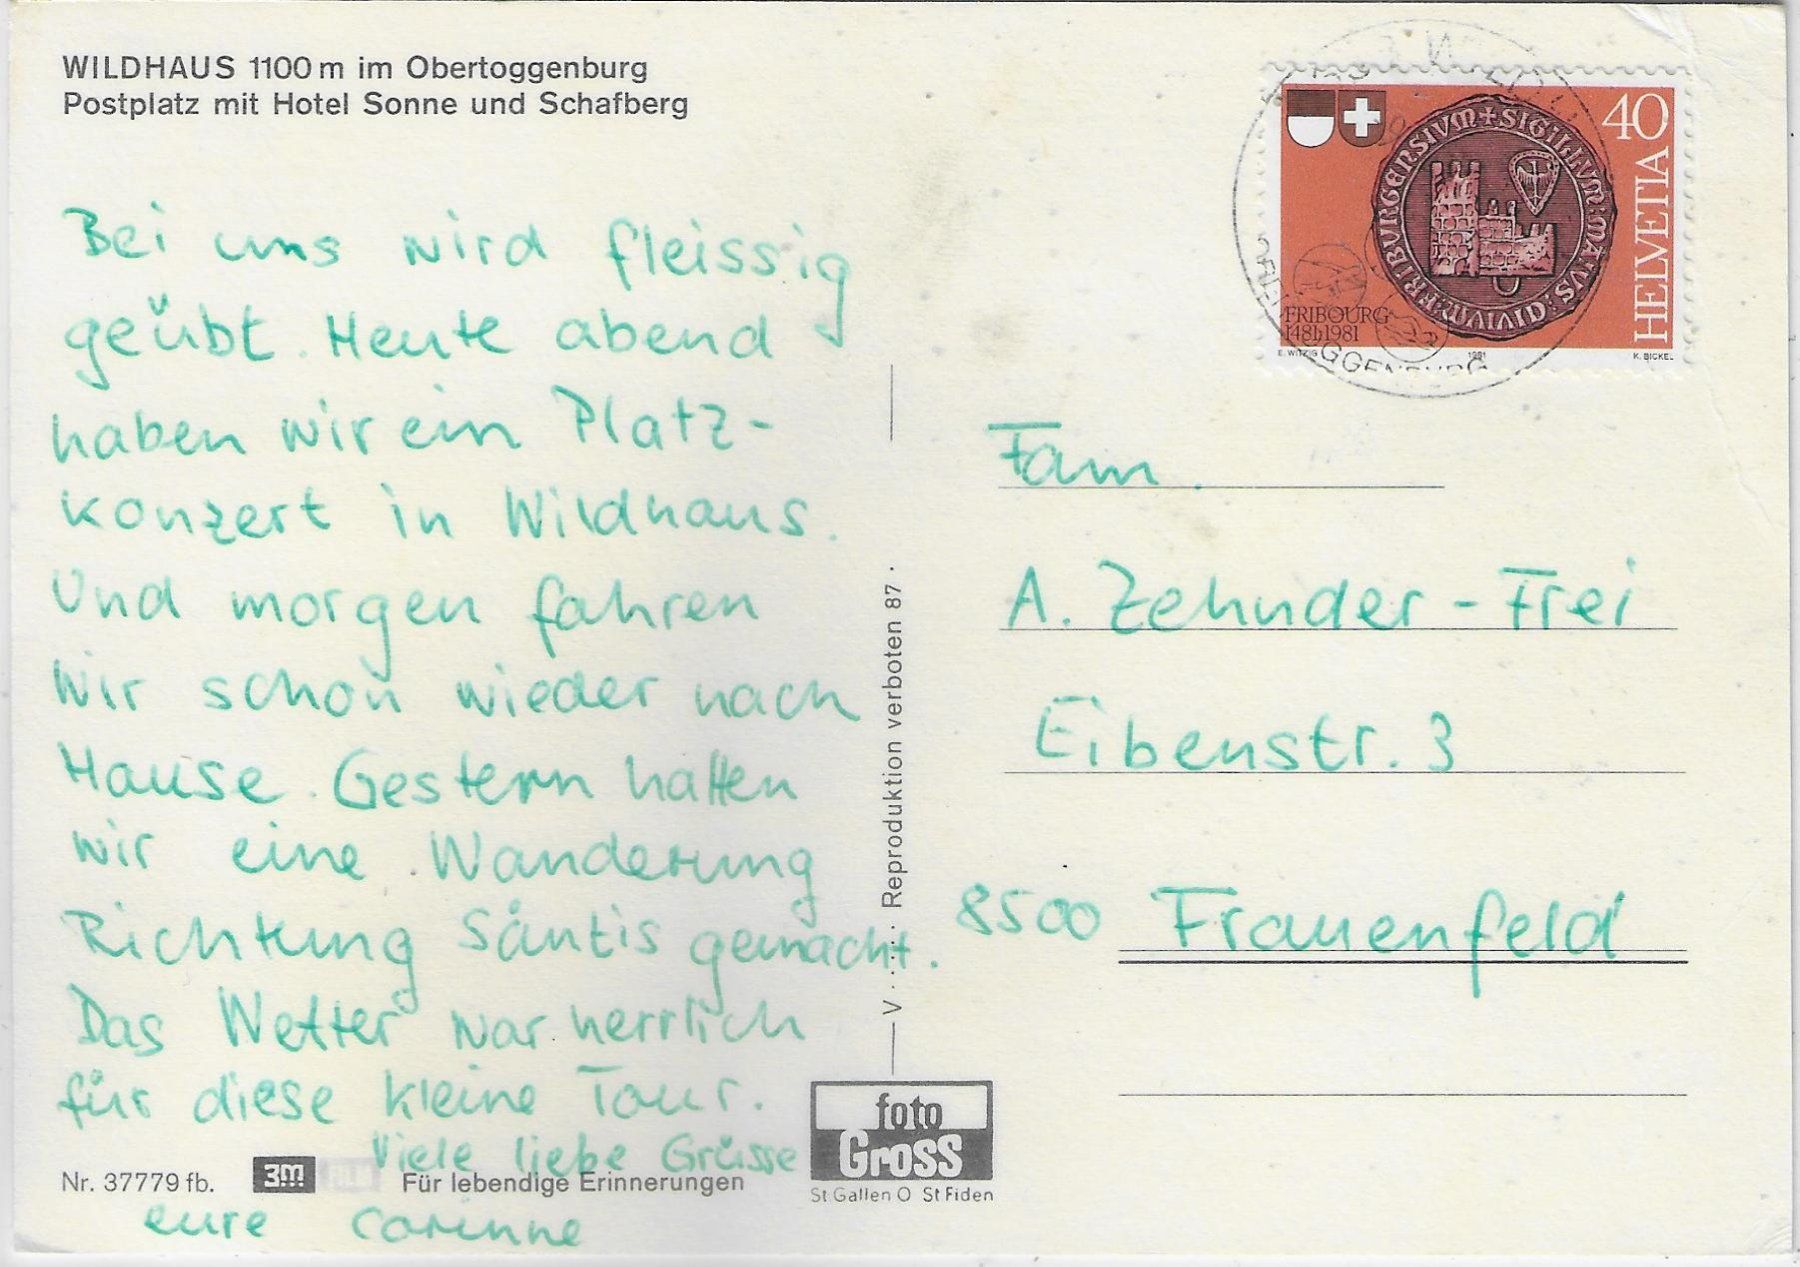 WILDHAUS 1100 m im Obertoggenburg
Postplatz mit Hotel Sonne und Schafberg
Bei uns wird fleissig
geübt. Heute abend
haben wir ein Platz-
konzert in Wildhaus.
Und morgen fahren
wir schon wieder nach
Hause. Gestern hatten
wir eine Wanderung
Richtung Säntis gemacht.
Das Wetter war herrlich
für diese kleine Tour.
Viele liebe Grüsse
eure Corinne
Nr. 37779 fb.
3M
Für lebendige Erinnerungen
V · · · · Reproduktion verboten 87 ·
foto
Gross
St Gallen O St Fiden
40
HELVETIA
SIGILLVM:MAIUS
FRIBURGENSIVM
FRIBOURG
1481 1981
E. WITZIG
1981
K. BICKEL
Fam.
A. Zehnder-Frei
Eibenstr. 3
8500 Frauenfeld